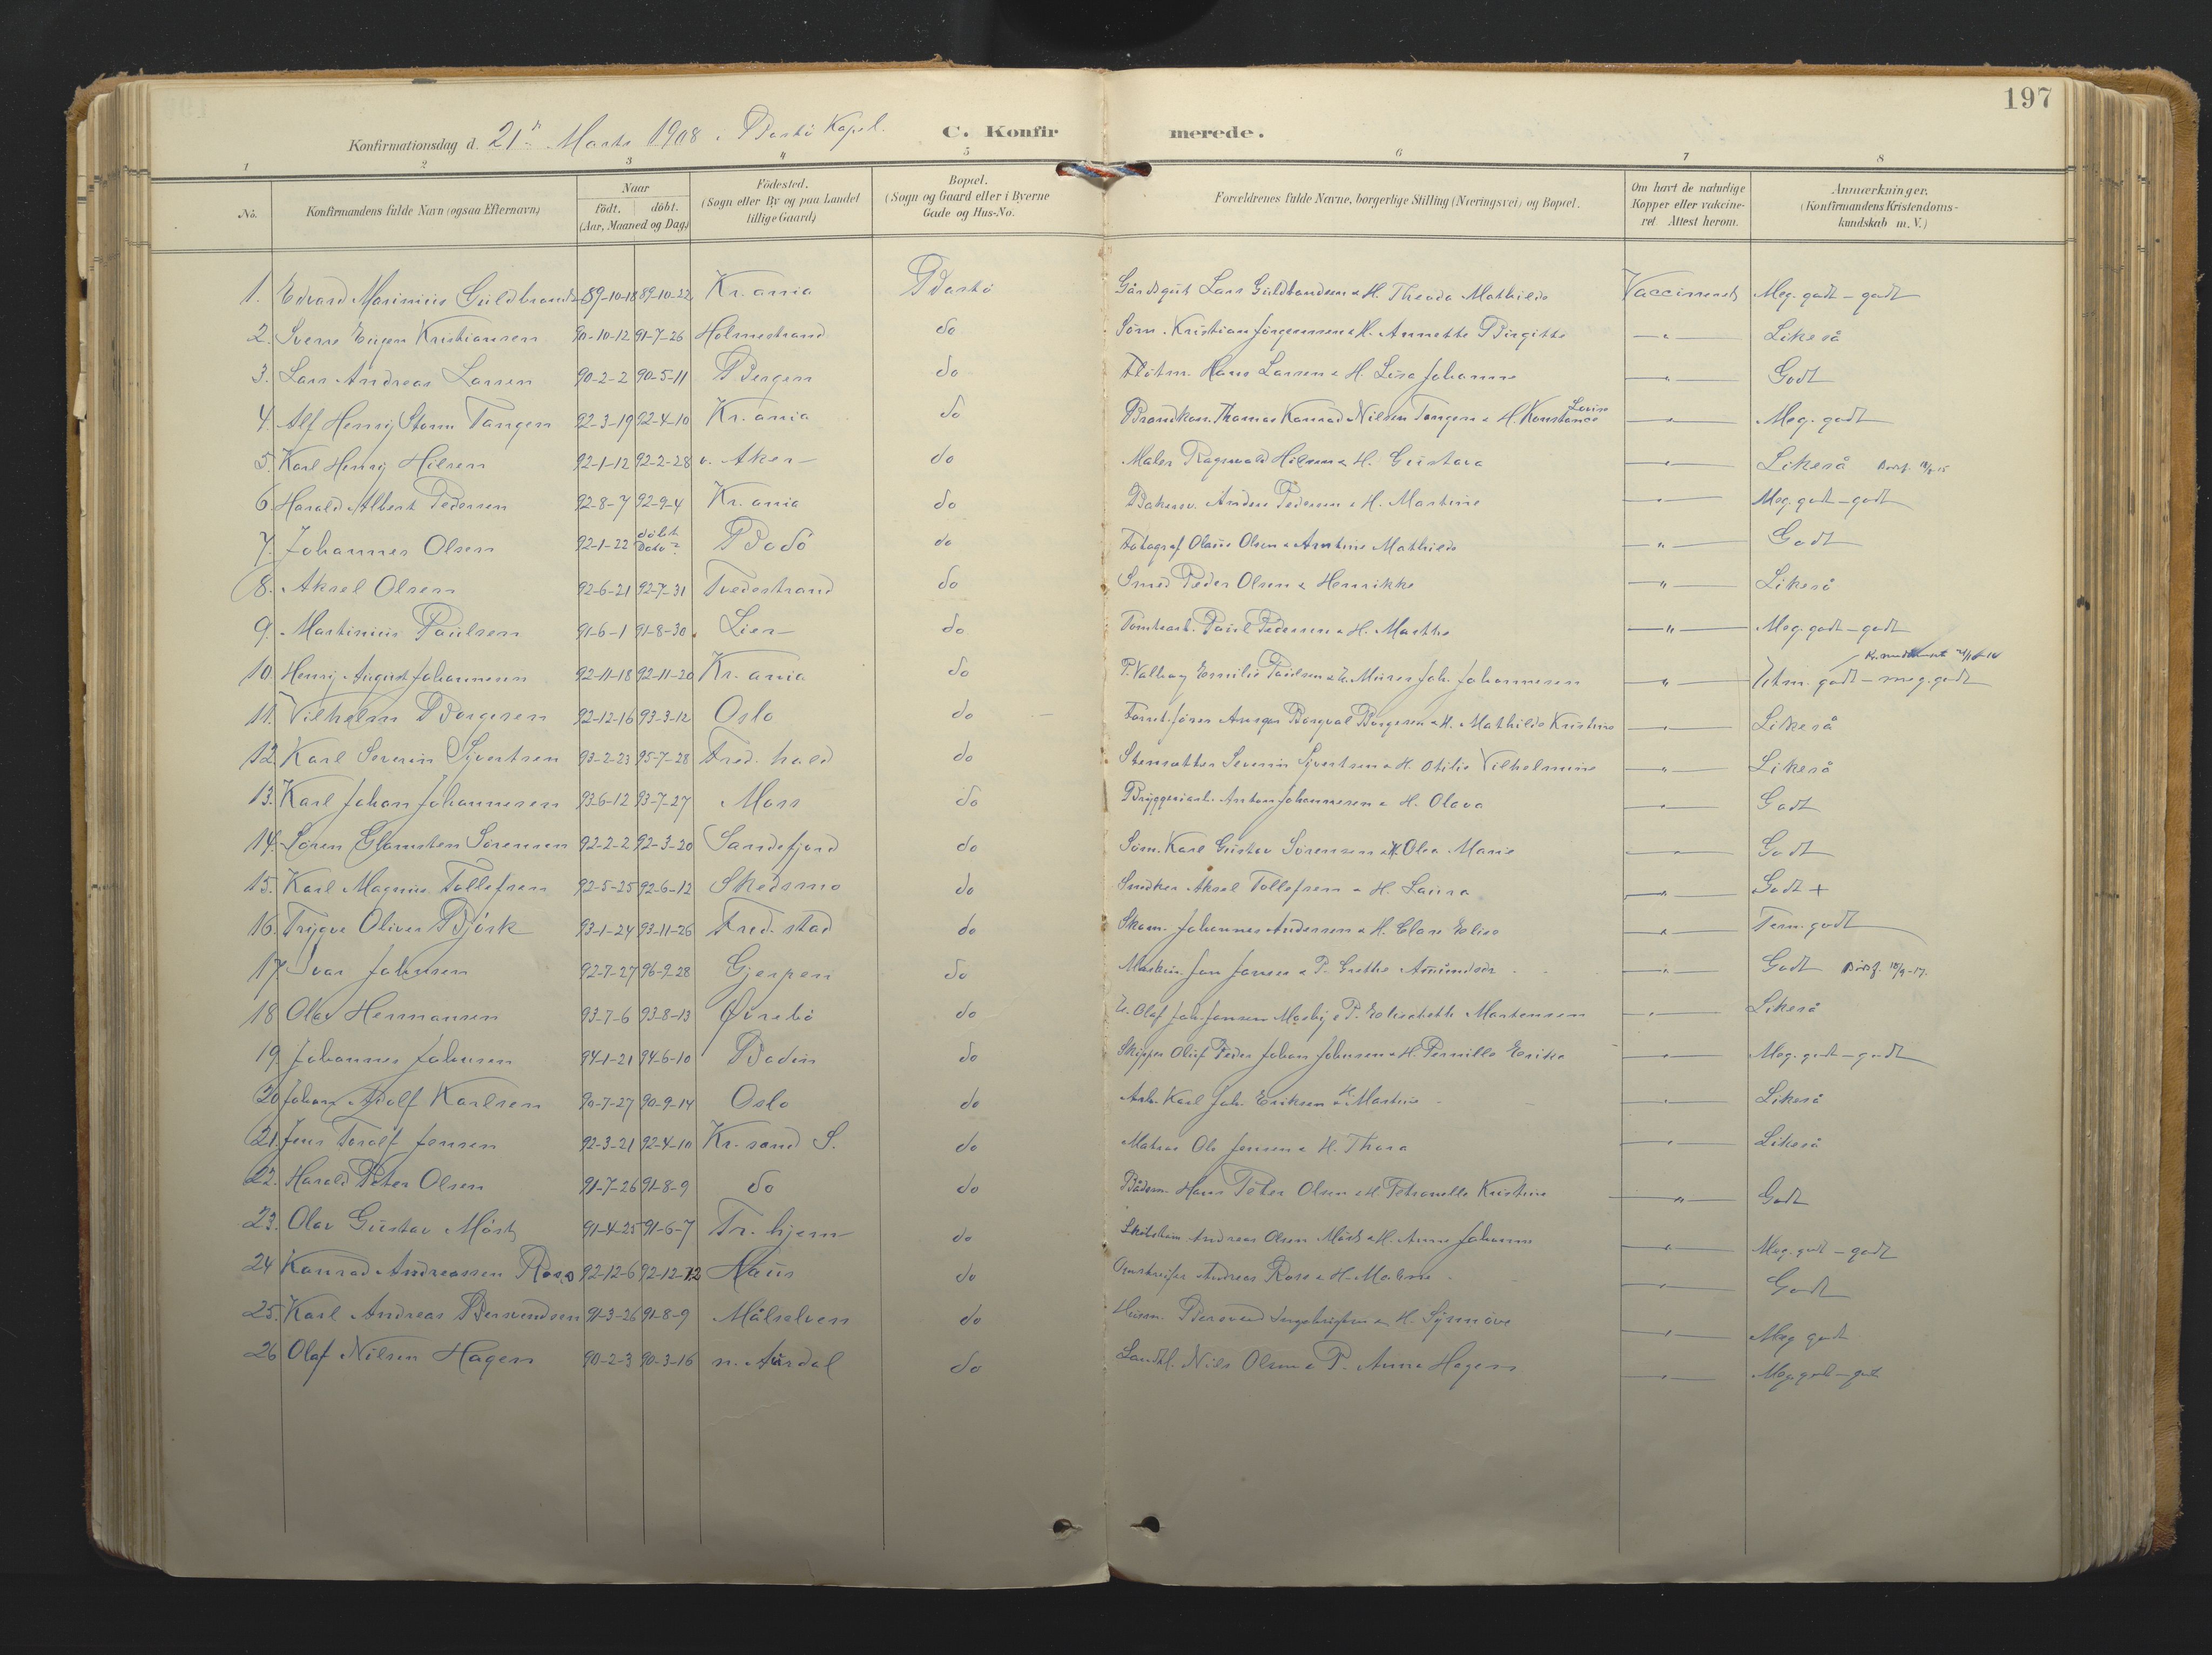 197
Konfirmationsdag d. 21. Marts 1908 Bastö Kapel. C. Konfirmerede.
1 2 3 4 5 6 7 8
No. Konfirmandens fulde Navn (ogsaa Efternavn) Naar født. døbt. (Aar, Maaned og Dag) Födested. (Sogn eller By og paa Landet tillige Gaard) Bopæl. (Sogn og Gaard eller i Byerne Gade og Hus-No. Forældrenes fulde Navne, borgerlige Stilling (Næringsvei) og Bopæl. Om havt de naturlige Kopper eller vakcineret Attest herom. Anmærkninger. (Konfirmandens Kristendomskundskab m. V.)
1. Edvard Marinius Guldbrands 89-10-18 89-10-22 Kr.ania Bastö Lars Guldbrandsen & H. Theoda Mathilde Vaccineret Meg. godt - godt
2. Sverre Eugen Kristiansen 90-10-12 91-7-26 Holmestrand do Söm. Kristian Jörgensen & H. Annette Birgitte -"- Likeså
3. Lars Andreas Larsen 90-2-2 90-5-11 Bergen do Hans Larsen & H. Lisa Johanne -"- Godt
4. Alf Henrij Storm Tangen 92-3-19 92-4-10 Kr.ania do Thomas Konrad Nilsen Tangen & H. Konstance Lovise -"- Meg. godt
5. Karl Henrij Hilsen 92-1-12 92-2-28 v. Aker do Maler Ragnvald Hilsen & H. Gustava -"- Likeså
6. Harald Albert Pedersen 92-8-7 92-9-4 Kr.ania do Anders Pedersen & H. Martine -"- Meg. godt - godt
7. Johannes Olsen 92-1-22 döbt Dato? Bodö do Fotograf Olaus Olsen & Antine Mathilde -"- Godt
8. Aksel Olsen 92-6-21 92-7-31 Tvedestrand do Smed Peder Olsen & Henrikke -"- Likeså
9. Martinius Paulsen 91-6-1 91-8-30 Lier do Tomtearb. Paul Pedersen & H. Marthe -"- Meg. godt - godt
10. Henrij August Johannesen 92-11-18 92-11-20 Kr.ania do P. Valborg Emilie Paulsen & Murer Joh. Johannesen -"- godt - meg. godt
11. Vilhelm Borgersen 92-12-16 93-3-12 Oslo do Ansgar Borgersen & H. Mathilde Kristine -"- Likeså
12. Karl Severin Syvertsen 93-2-23 95-7-28 Fred.hald do Stensætter Severin Syvertsen & H. Otilie Vilhelmine -"- Likeså
13. Karl Johan Johannesen 93-6-12 93-7-27 Moss do Bryggeriarb. Anton Johannesen & H. Olava -"- Godt
14. Sören Sörensen 92-2-2 92-3-20 Sandefjord do Söm. Karl Gustav Sörensen & H. Olea Marie -"- Godt
15. Karl Magnus Tollefsen 92-5-25 92-6-12 Skedsmo do Snedker Aksel Tollefsen & H. Laura -"- Godt +
16. Trygve Oliver Björk 93-1-24 93-11-26 Fred.stad do Skom. Johannes Andersen & H. Clara Elise -"- Tem. godt
17. Ivar Johnsen 92-7-27 96-9-28 Gjerpen do Maskin. Jon Jonsen & P. Grethe Amundsdr -"- Godt
18 Olav Hermansen 93-7-6 93-8-13 Öirebö do Olaf Joh. Jensen Mosby & P. Elisabeth Mortensen -"- Likeså
19. Johannes Johnsen 94-1-21 94-6-10 Bodin do Skipper Oluf Peder Johan Johnsen & H. Pernille -"- Meg. godt - godt
20 Johan Adolf Karlsen 90-7-27 90-9-14 Oslo do Arb. Karl Joh. Eriksen & H. Martine -"- Likeså
21. Jens Toralf Jensen 92-3-21 92-4-10 Kr.sand S. do Matros Ole Jensen & H. Thora -"- Likeså
22. Harald Peter Olsen 91-7-26 91-8-9 do do Hans Peter Olsen & H. Petronelle Kristine -"- Godt
23. Olav Gustav Möst 91-4-25 91-6-7 Tr.hjem do Andreas Olsen Möst & H. Anna Johanne -"- Meg. godt - godt
24 Konrad Andreassen Rose 92-12-6 92-12-12 Haus do Andreas Rose & H. Malene -"- Godt
25. Karl Andreas Bersvendsen 91-3-26 91-8-9 Målselven do Husm. Bersvend Ingebrigtsen & H. Synnöve -"- Meg godt
26 Olaf Nilsen Hagen 90-2-3 90-3-16 n. Aurdal do Landh. Nils Olsen & P. Anne Hagen -"- Meg. godt - godt